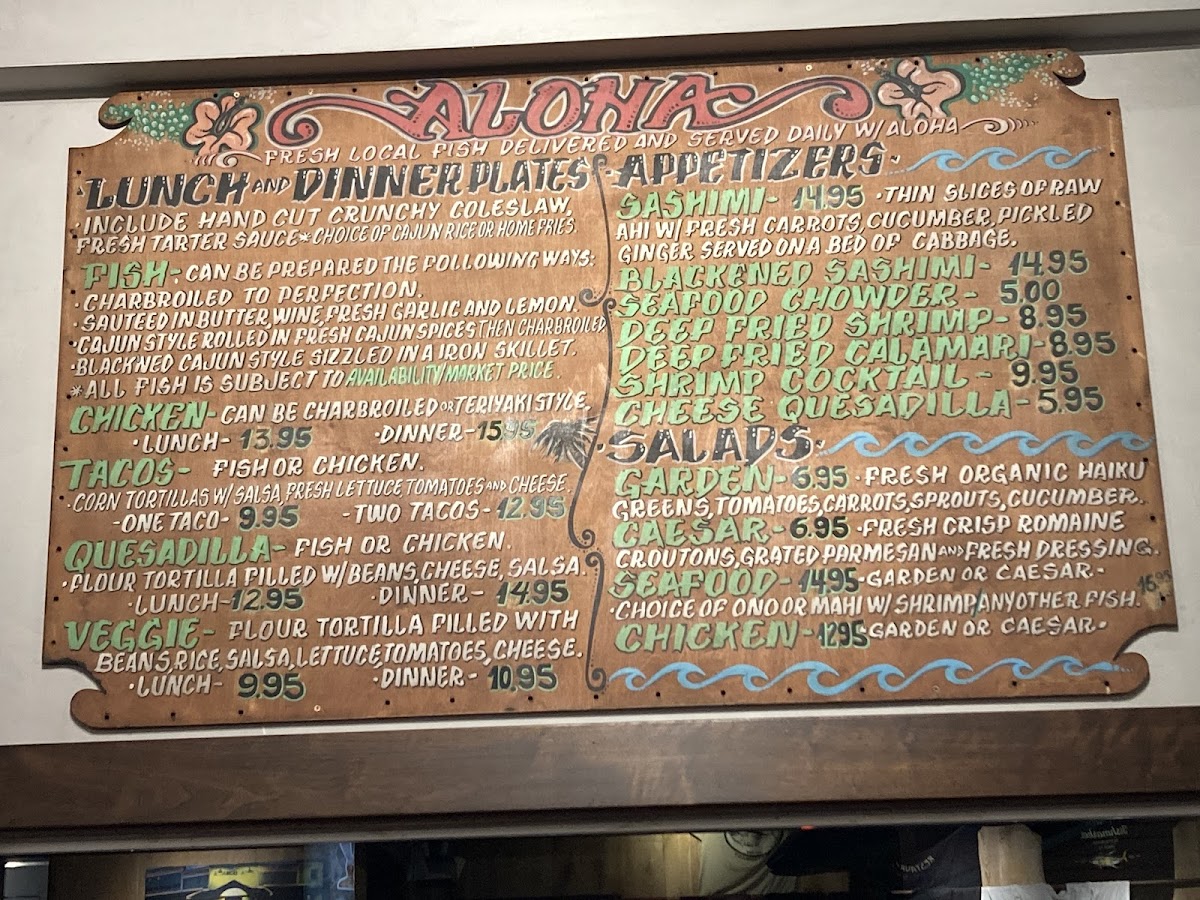 ALOHA
FRESH LOCAL FISH DELIVERED AND SERVED DAILY W/ALOHA
LUNCH AND DINNER PLATES
·INCLUDE HAND CUT CRUNCHY COLESLAW,
FRESH TARTER SAUCE*CHOICE OF CAJUN RICE OR HOME FRIES.
FISH- CAN BE PREPARED THE FOLLOWING WAYS:
·CHARBROILED TO PERFECTION.
·SAUTEED IN BUTTER, WINE, FRESH GARLIC AND LEMON
·CAJUN STYLE ROLLED IN FRESH CAJUN SPICES THEN CHARBROILED
·BLACKNED CAJUN STYLE SIZZLED IN A IRON SKILLET.
*ALL FISH IS SUBJECT TO AVAILABILITY/MARKET PRICE.
CHICKEN- CAN BE CHARBROILED OR TERIYAKI STYLE
·LUNCH- 13.95 ·DINNER- 15.95
TACOS- FISH OR CHICKEN.
·CORN TORTILLAS W/SALSA, FRESH LETTUCE TOMATOES AND CHEESE.
-ONE TACO- 9.95 -TWO TACOS- 12.95
QUESADILLA- FISH OR CHICKEN.
·FLOUR TORTILLA FILLED W/BEANS, CHEESE, SALSA.
·LUNCH- 12.95 ·DINNER- 14.95
VEGGIE- FLOUR TORTILLA FILLED WITH
BEANS, RICE, SALSA, LETTUCE, TOMATOES, CHEESE.
·LUNCH- 9.95 ·DINNER- 10.95
·APPETIZERS·
SASHIMI- 14.95 ·THIN SLICES OF RAW
AHI W/FRESH CARROTS, CUCUMBER, PICKLED
GINGER SERVED ON A BED OF CABBAGE.
BLACKENED SASHIMI- 14.95
SEAFOOD CHOWDER- 5.00
DEEP FRIED SHRIMP- 8.95
DEEP FRIED CALAMARI- 8.95
SHRIMP COCKTAIL- 9.95
CHEESE QUESADILLA- 5.95
·SALADS·
GARDEN- 6.95 ·FRESH ORGANIC HAIKU
GREENS, TOMATOES, CARROTS, SPROUTS, CUCUMBER.
CAESAR- 6.95 ·FRESH CRISP ROMAINE
CROUTONS, GRATED PARMESAN AND FRESH DRESSING.
SEAFOOD- 14.95 -GARDEN OR CAESAR-
·CHOICE OF ONO OR MAHI W/SHRIMP/ANY OTHER FISH. 16.95
CHICKEN- 12.95 GARDEN OR CAESAR·